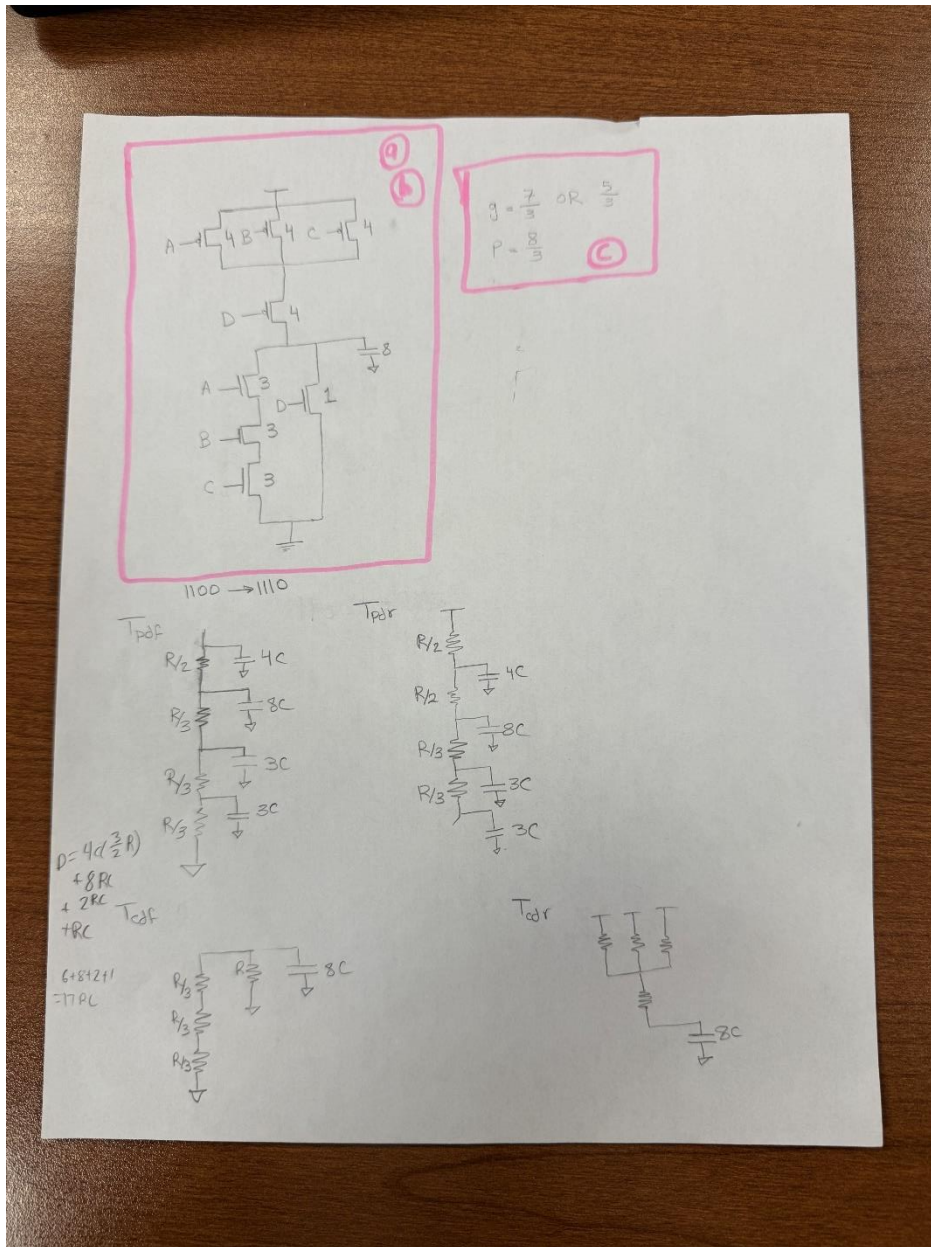 a
b
A 4 B 4 C 4
D 4
8
A 3 D 1
B 3
C 3
g = 7/3 OR 5/3
P = 8/3
c
1100 → 1110
Tpdf
R/2 4C
R/3 8C
R/3 3C
R/3 3C
Tpdr
R/2
4C
R/2
8C
R/3
R/3 3C
3C
D = 4C(3/2 R)
+ 8RC
+ 2RC
+ RC
6+8+2+1
= 17RC
Tcdf
R/3 R 8C
R/3
R/3
Tcdr
8C